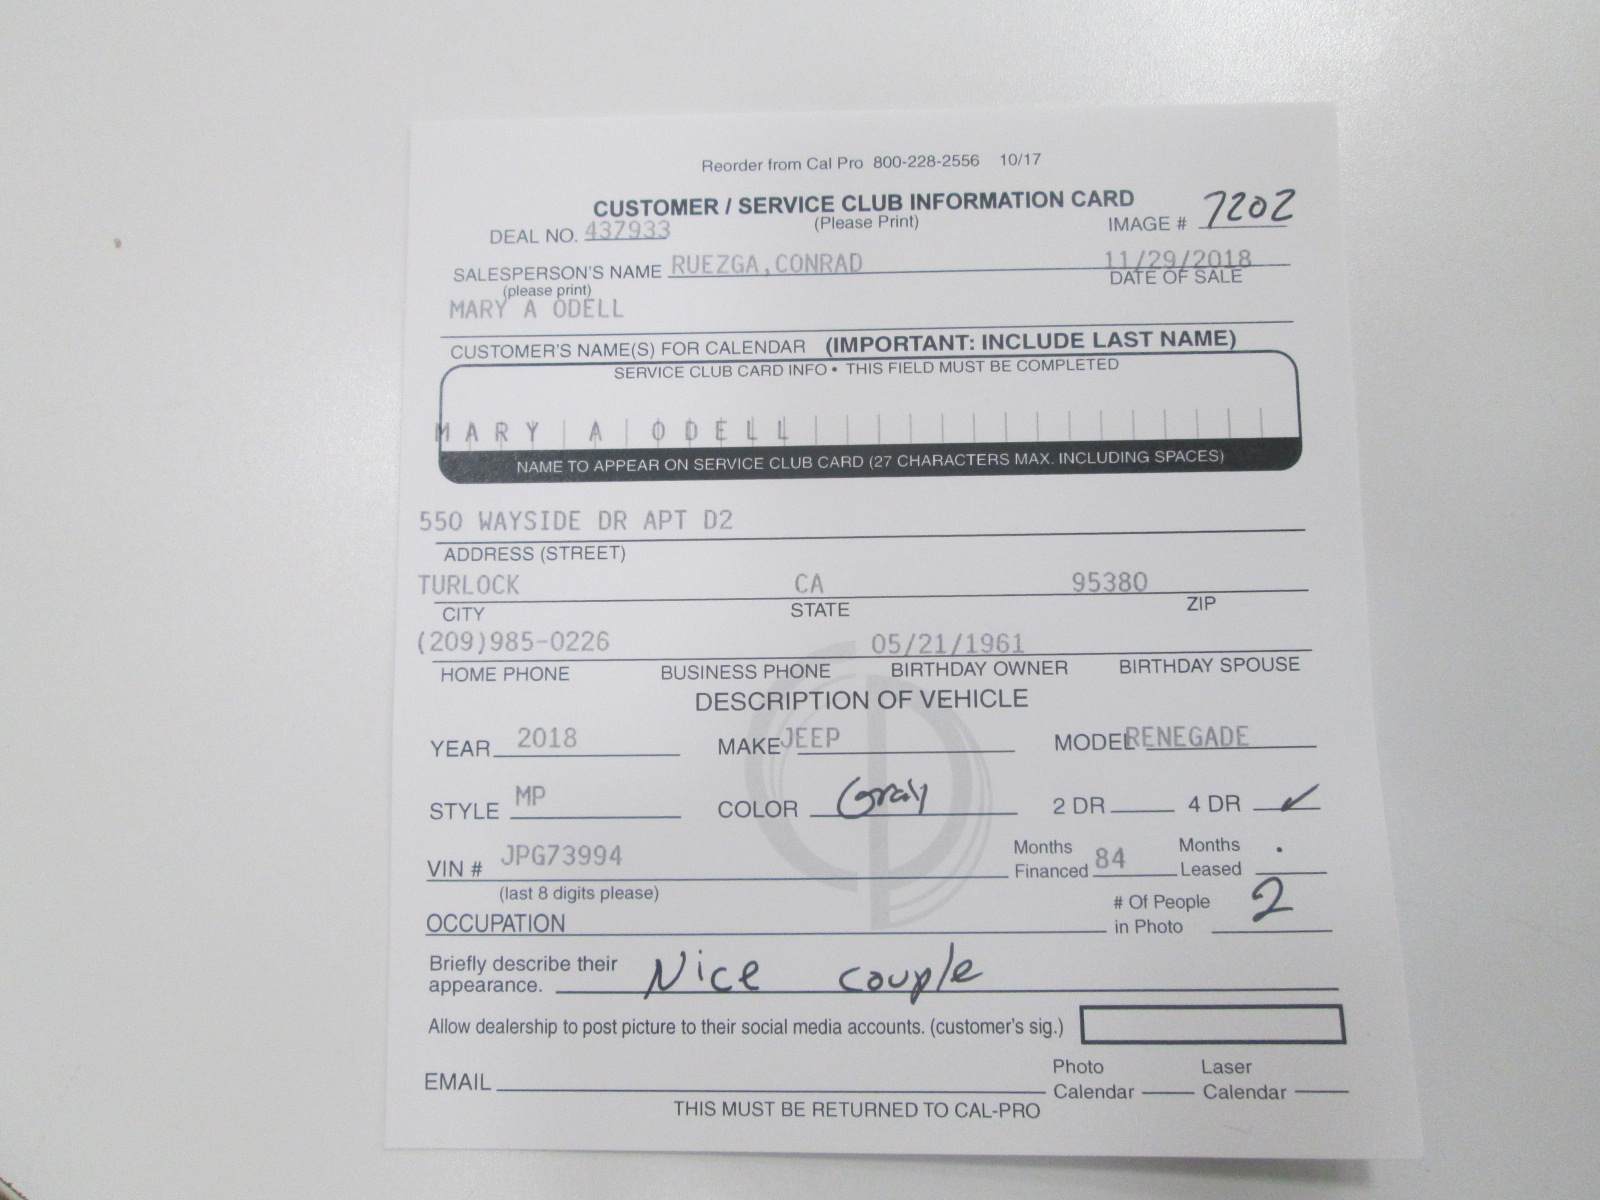 Reorder from Cal Pro 800-228-2556 10/17
CUSTOMER / SERVICE CLUB INFORMATION CARD
(Please Print)
DEAL NO. 437933
IMAGE # 7202
SALESPERSON'S NAME RUEZGA,CONRAD 11/29/2018
(please print) DATE OF SALE
MARY A ODELL
CUSTOMER'S NAME(S) FOR CALENDAR (IMPORTANT: INCLUDE LAST NAME)
SERVICE CLUB CARD INFO • THIS FIELD MUST BE COMPLETED
MARY A ODELL
NAME TO APPEAR ON SERVICE CLUB CARD (27 CHARACTERS MAX. INCLUDING SPACES)
550 WAYSIDE DR APT D2
ADDRESS (STREET)
TURLOCK CA 95380
CITY STATE ZIP
(209)985-0226 05/21/1961
HOME PHONE BUSINESS PHONE BIRTHDAY OWNER BIRTHDAY SPOUSE
DESCRIPTION OF VEHICLE
YEAR 2018 MAKE JEEP MODEL RENEGADE
STYLE MP COLOR Gray 2 DR 4 DR ✓
VIN # JPG73994 Months Financed 84 Months Leased
(last 8 digits please)
OCCUPATION # Of People in Photo 2
Briefly describe their appearance. Nice couple
Allow dealership to post picture to their social media accounts. (customer's sig.)
EMAIL Photo Calendar Laser Calendar
THIS MUST BE RETURNED TO CAL-PRO